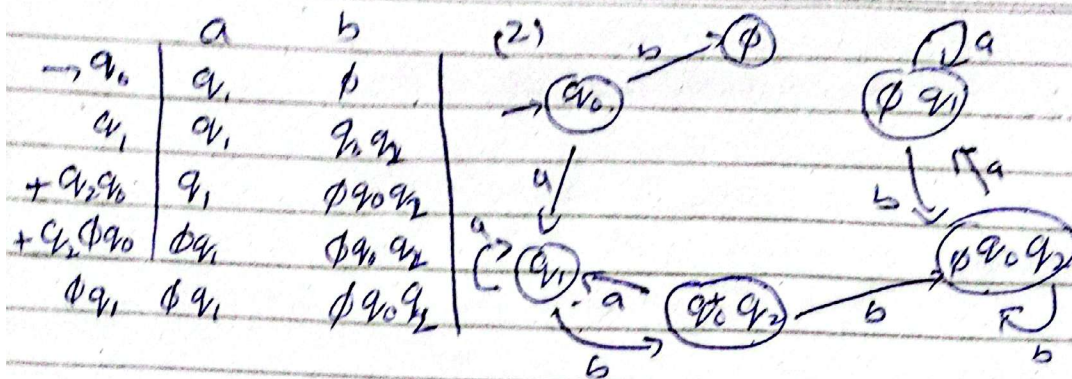 a b
→ q₀ q₁ ϕ
q₁ q₁ q₀ q₂
+ q₂q₀ q₁ ϕq₀q₂
+ q₂ϕq₀ ϕq₁ ϕq₀q₂
ϕq₁ ϕq₁ ϕq₀q₂
(2)
b ϕ a
→ q₀ ϕ q₁
a b a
a q₁ a q₀⁺ q₂ b ϕq₀q₂
b b